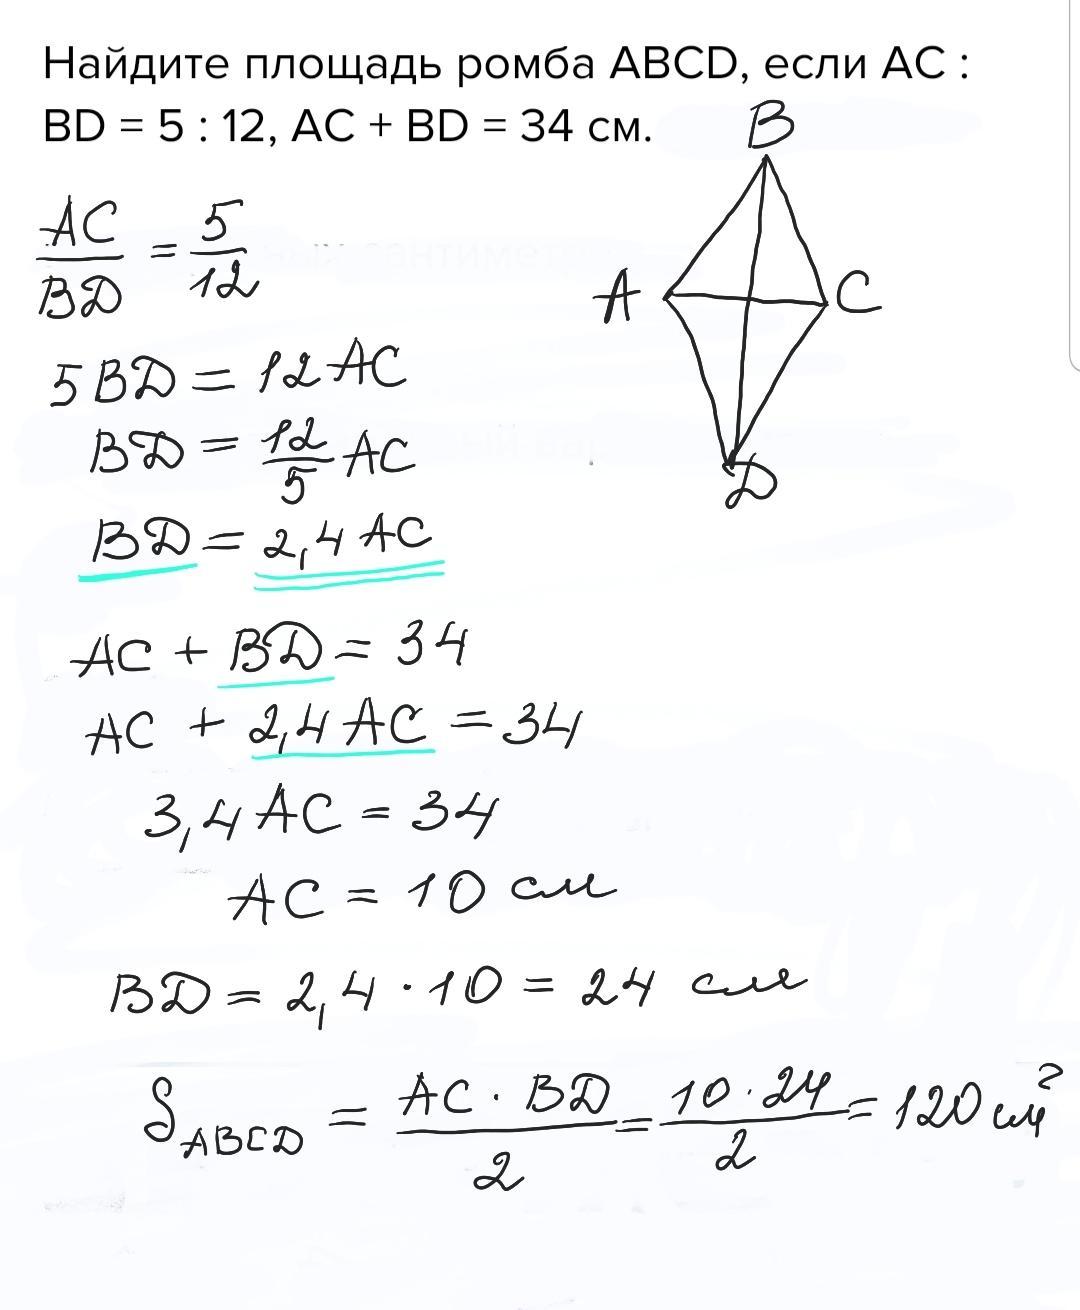 Найдите площадь ромба ABCD, если AC :
BD = 5 : 12, AC + BD = 34 см.
B
AC/BD = 5/12
A C
5BD = 12AC
BD = 12/5 AC
D
BD = 2,4AC
AC + BD = 34
AC + 2,4AC = 34
3,4AC = 34
AC = 10 см
BD = 2,4 · 10 = 24 см
S ABCD = AC · BD/2 = 10 · 24/2 = 120 см²